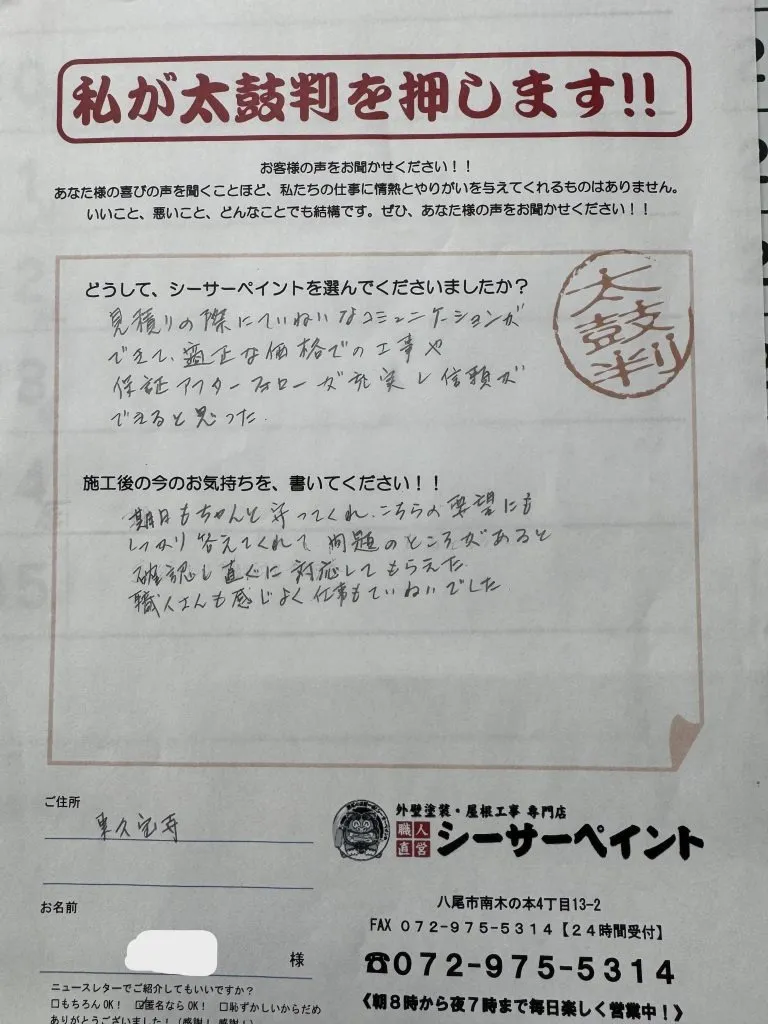 私が太鼓判を押します!!
お客様の声をお聞かせください!!
あなた様の喜びの声を聞くことほど、私たちの仕事に情熱とやりがいを与えてくれるものはありません。
いいこと、悪いこと、どんなことでも結構です。ぜひ、あなた様の声をお聞かせください!!
太鼓判
どうして、シーサーペイントを選んでくださいましたか?
見積りの際にていねいなコミュニケーションが
できて、適正な価格での工事や
保証アフターフォローが充実し信頼が
できると思った.
施工後の今のお気持ちを、書いてください!!
期日もちゃんと守ってくれ、こちらの要望にも
しっかり答えてくれて 問題のところがあると
確認し直ぐに対応してもらえた.
職人さんも感じよく仕事もていねいでした
ご住所
東久宝寺
お名前
様
ニュースレターでご紹介してもいいですか?
□もちろんOK! ☑匿名ならOK! □恥ずかしいからだめ
ありがとうございました!(感謝!感謝!)
外壁塗装・屋根工事 専門店
職人直営 シーサーペイント
八尾市南木の本4丁目13-2
FAX 072-975-5314【24時間受付】
☎072-975-5314
《朝8時から夜7時まで毎日楽しく営業中!》